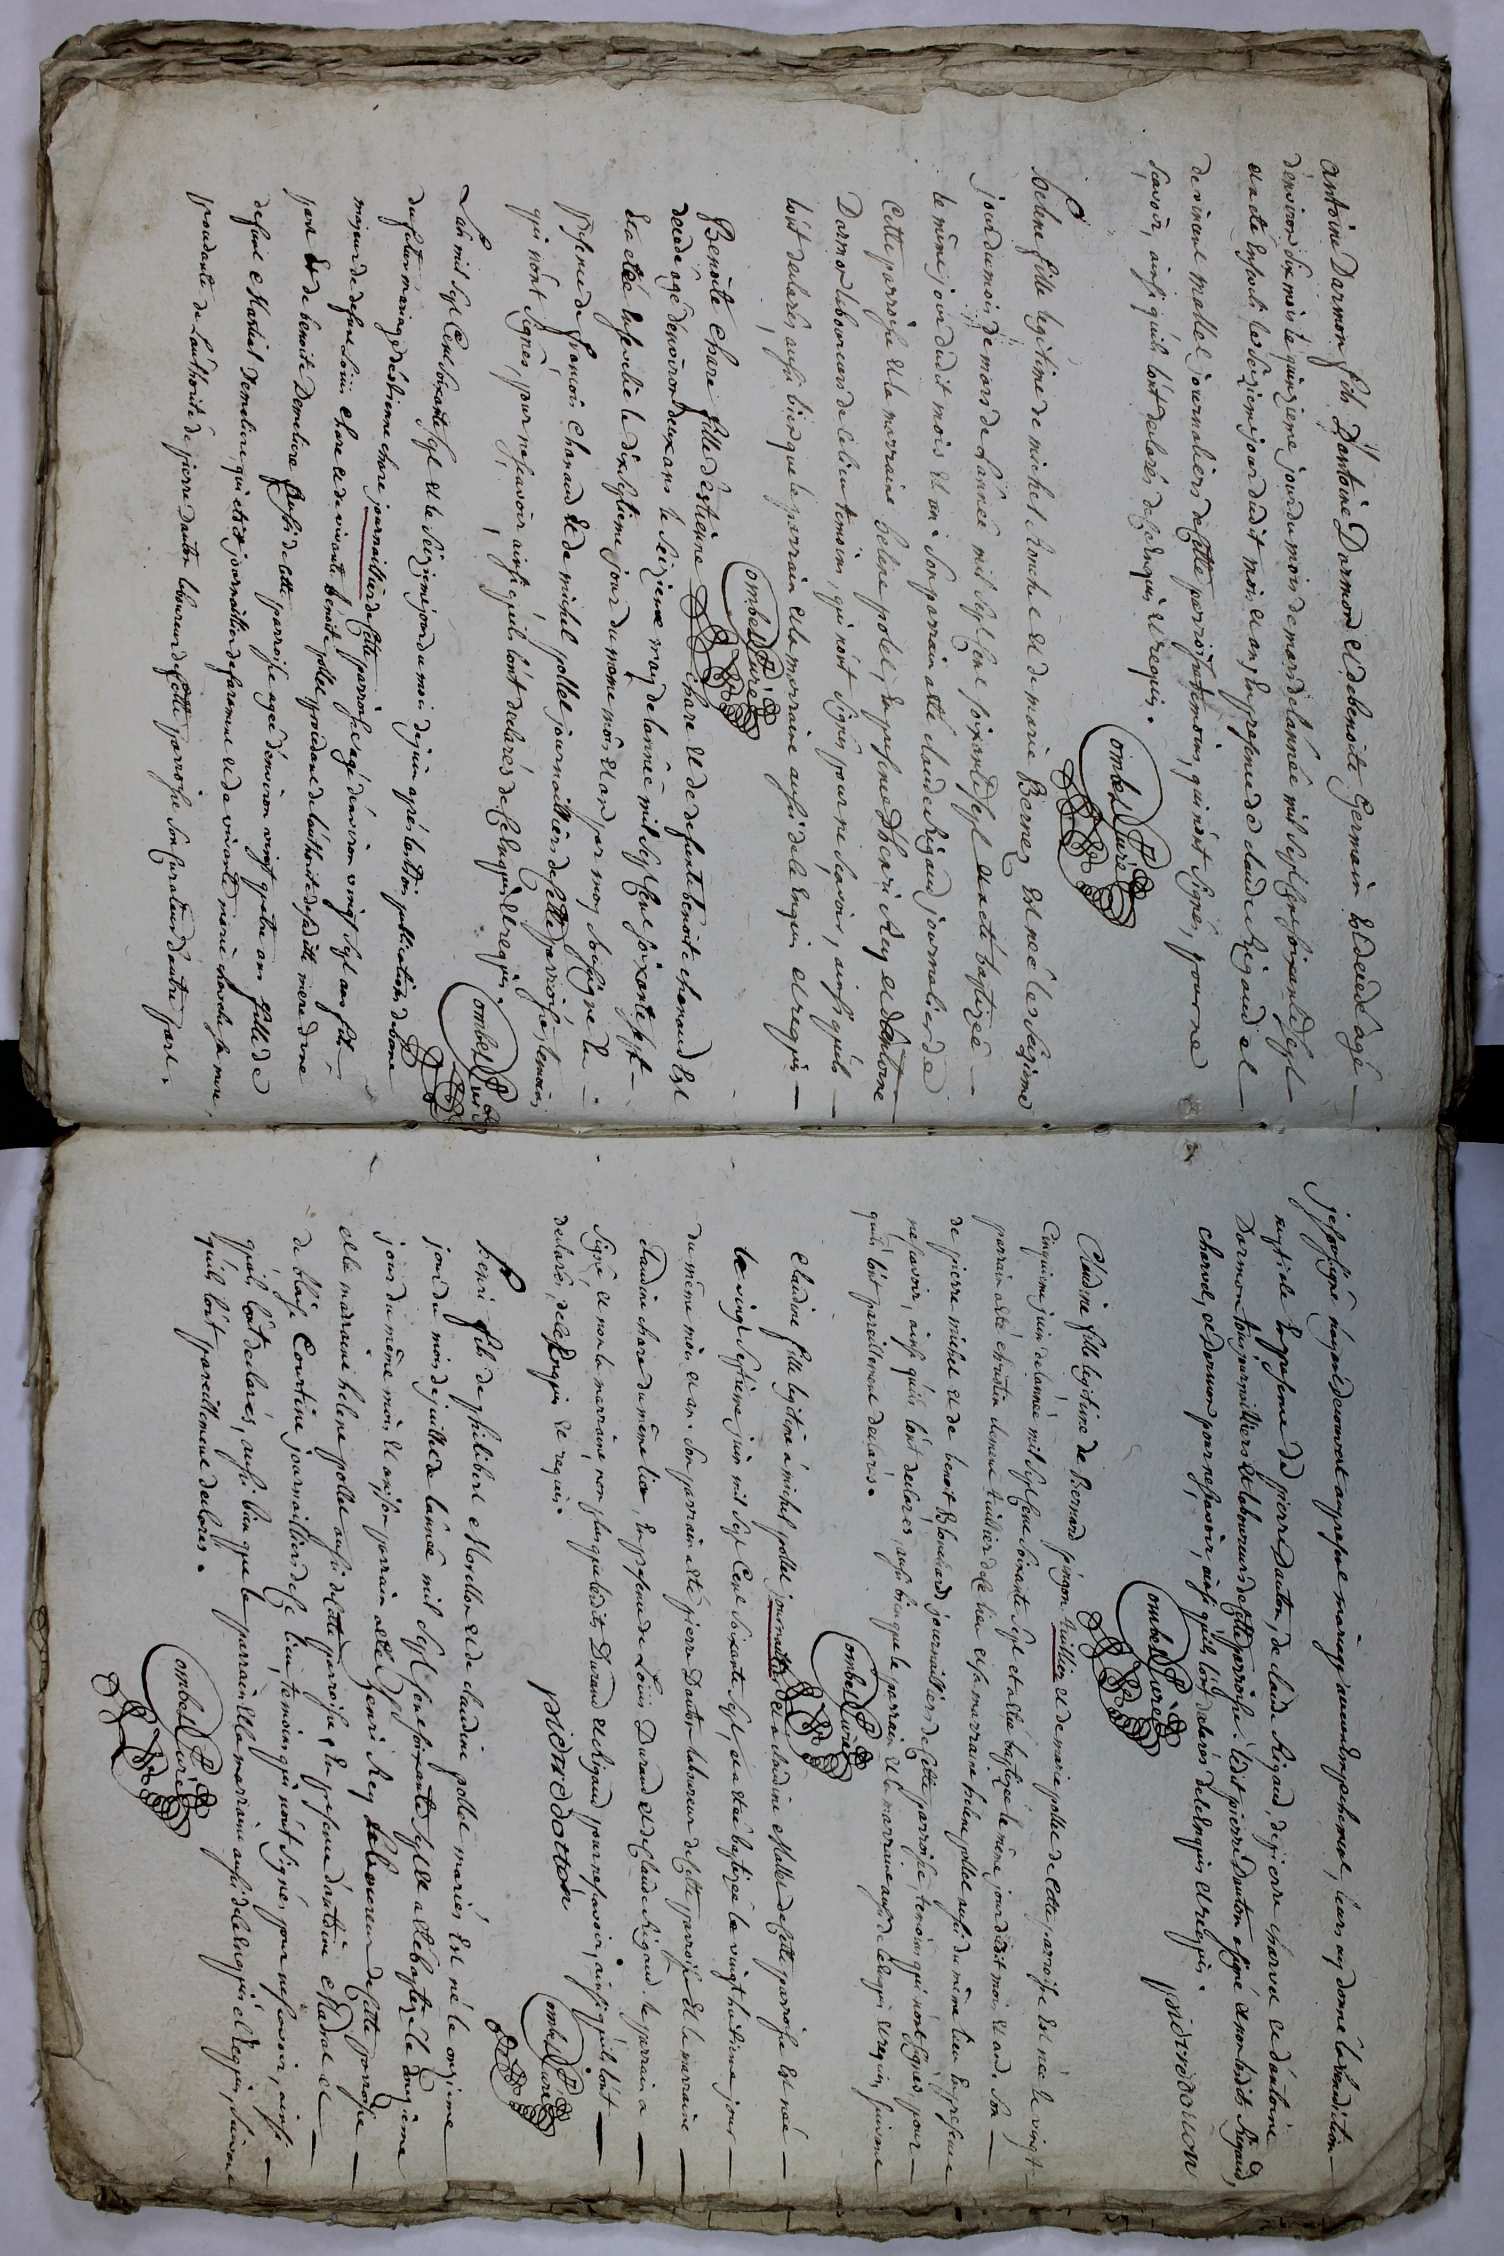 Antoine Darmon fils D'antoine Darmon et de benoite Germain Est decedé agé
d'environ six mois le quinzieme jour du mois de mars de l'année mil sept cent soixante et sept
et a été Enseveli le seizieme jour dudit mois et an, En presence de claude Rigaud et
de vincent mallet journaliers de cette parroisse temoins, qui n'ont signés, pour ne
scavoir, ainsi qu'ils l'ont declarés de ce Enquis et requis.
ombet Curé
helene fille legitime de michel Ronche et de marie Bernez Est neé le septieme
jour du mois de mars de L'anneé mil sept cent soixante sept et a eté baptizeé
le même jour dudit mois et an. Son parrain a eté claude Rigaud journalier de
Cette parroisse et la marraine helene potet, En presence D'henri Rey et d'Antoine
Darmon laboureurs de ce lieu temoins, qui n'ont signés pour ne scavoir, ainsi qu'ils
l'ont declarés, aussi bien que le parrain et la marraine aussi de ce Enquis et requis
ombet Curé
Benoite Chare fille d'Estienne Chare et de defunte benoite chanaud Est
decedé agé d'environ deux ans le seizieme may de l'anneé mil sept cent soixante sept
Et a eteé Enseveliè le dixseptieme jour du meme mois et an par moy soussigné En
presence de francois Chanaud et de michel pollet journailliers de cette parroisse temoins
qui n'ont signés, pour ne scavoir ainsi qu'ils l'ont declarés de ce Enquis et requis.
ombet Curé
L'an mil sept Cent soixante sept et le seizieme jour du mois de juin après les trois publications de bans
du futur mariage d'estienne chare journaillier de Cette parroisse agé d'environ vingt sept ans fils
majeur de defunt Louis chare et de vivante benoite pollet procedant de l'authorité de sa ditte mere d'une
part Et de benoite Demeliere aussi de cette parroisse ageé d'environ vingt quatre ans fille de
defunt Martial Demeliere, qui etoit journaillier de faramand et de vivante marie chavalet sa mere,
procedante de L'authorité de pierre dauton laboureur de Cette parroisse son Curateur D'autre part.
je soussigné n'ayant decouvert au present mariage aucun Empechement, leurs ay donné la benediction
nuptiale En presence de pierre Dauton, de claude Rigaud, de pierre charvet et d'antoine
Darmon tous journailliers et laboureurs de Cette parroisse ledit pierre Dauton a signé et non lesdits Rigaud,
charvet, et Darmon pour ne scavoir, ainsi qu'ils l'ont declarés de ce Enquis et requis.
pierre doton
ombet Curé
Claudine fille legitime de Bernard pingon tuillier et de marie pollet de cette parroisse Est neé le vingt
Cinquieme juin de l'anneé mil sept Cent soixante sept et a eté baptizeé le même jour dudit mois et an. Son
parrain a eté christin tuillier de ce lieu et sa marraine helene pollet aussi du même lieu En presence
de pierre michel et de benoit Blanchard journailliers de Cette parroisse, temoins qui n'ont signés, pour
ne scavoir, ainsi qu'ils l'ont declarés, aussi bien que le parrain et la marraine aussi de ce Enquis et requis, suivant
qu'ils l'ont pareillement declarés.
ombet Curé
Claudine fille legitime a michel pollet journaillier et a claudine Mallet de cette parroisse Est neé
le vingt septieme juin mil sept Cent soixante sept, et a eteé baptizeé le vingt huitieme jour
du même mois et an. Son parrain a eté pierre Dauton laboureur de Cette parroisse et la marraine
claudine chare du même lieu, En presence de Louis Durand et de Claude Rigaud. le parrain a
signé et non la marraine non plus que lesdits Durand et Rigaud pour ne scavoir, ainsi qu'ils l'ont
declarés, de ce Enquis et requis.
pierre dotton
ombet Curé
henri fils de philibert Morellon et de claudine pollet mariés Est né le onzieme
jour du mois de juillet de l'anneé mil sept cent soixante sept et a eté baptizé le onzieme
jour du même mois et an, son parrain a eté henri Rey laboureur de cette parroisse
et la marraine helene pollet aussi de cette parroisse, En presence d'antoine Mallat et
de blaise Courtine journailliers de ce lieu, temoins qui n'ont signés, pour ne scavoir, ainsi
qu'ils l'ont declarés, aussi bien que le parrain et la marraine aussi de ce Enquis et requis, suivant
qu'ils l'ont pareillement declarés.
ombet Curé